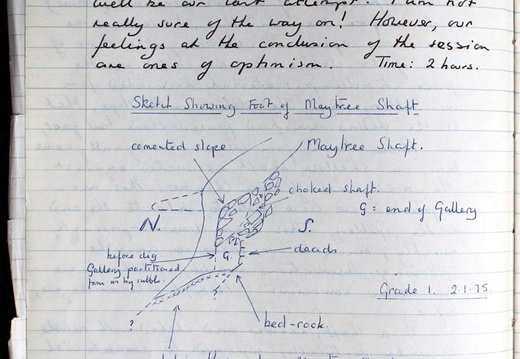 well be our last attempt. I am not
really sure of the way on! However, our
feelings at the conclusion of the session
are ones of optimism. Time: 2 hours.
Sketch Showing Foot of Maytree Shaft.
cemented slope
Maytree Shaft.
choked shaft.
G = end of Gallery
N.
S.
before dig
Gallery partitioned
from us by rubble.
G
deads
?
?
?
Grade 1. 2.1.75.
bed-rock.